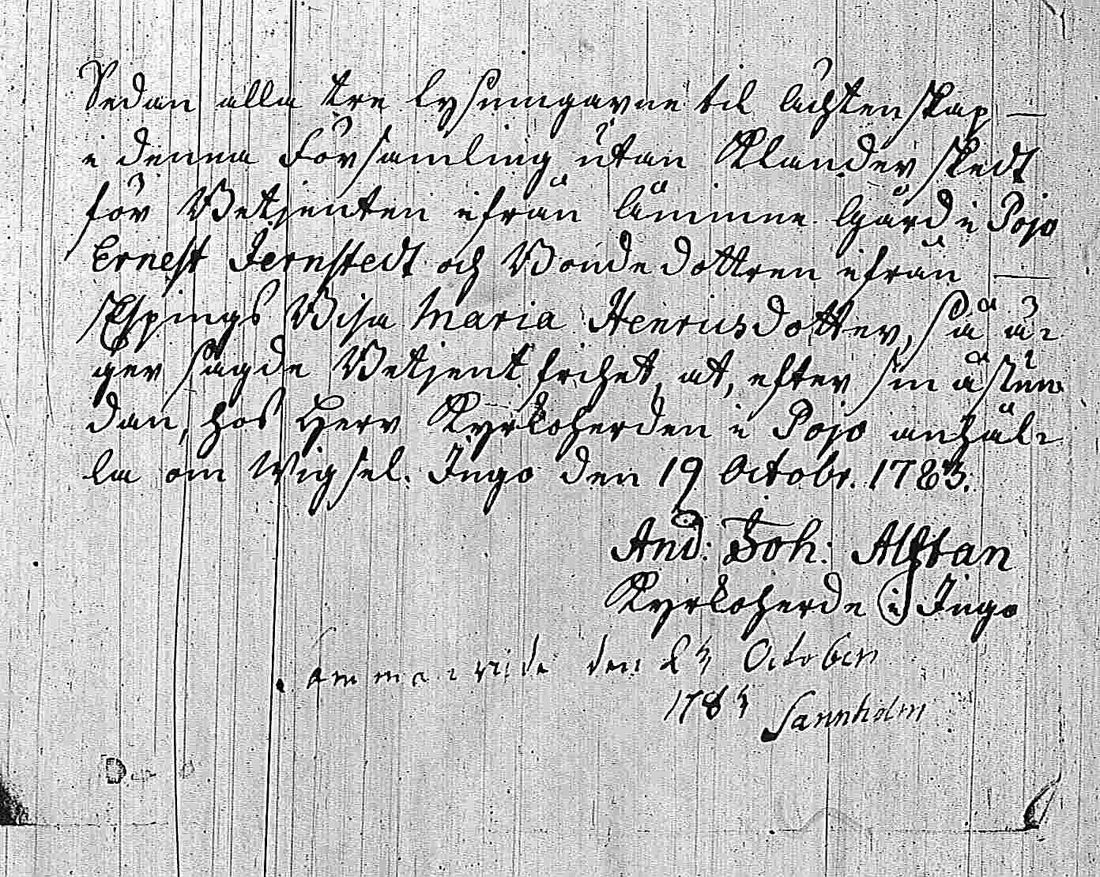 Sedan alla tre lysningarne til ächtenskap —
i denna Församling utan Klander skedt
för Betjenten ifrån Lämmne Gård i Pojo
Ernest Jernstedt och Bonde dottren ifrån —
Espings Visa Maria Henricsdotter, så ä-
ger sagde Betjent frihet at, efter sin åstun-
dan, hos Herr Kyrkoherden i Pojo anhål-
la om Wigsel. Ingo den 19 Octobr. 1783.
And: Joh: Alftan
Kyrkoherde i Ingo
den 23 October
1783 Sannholm